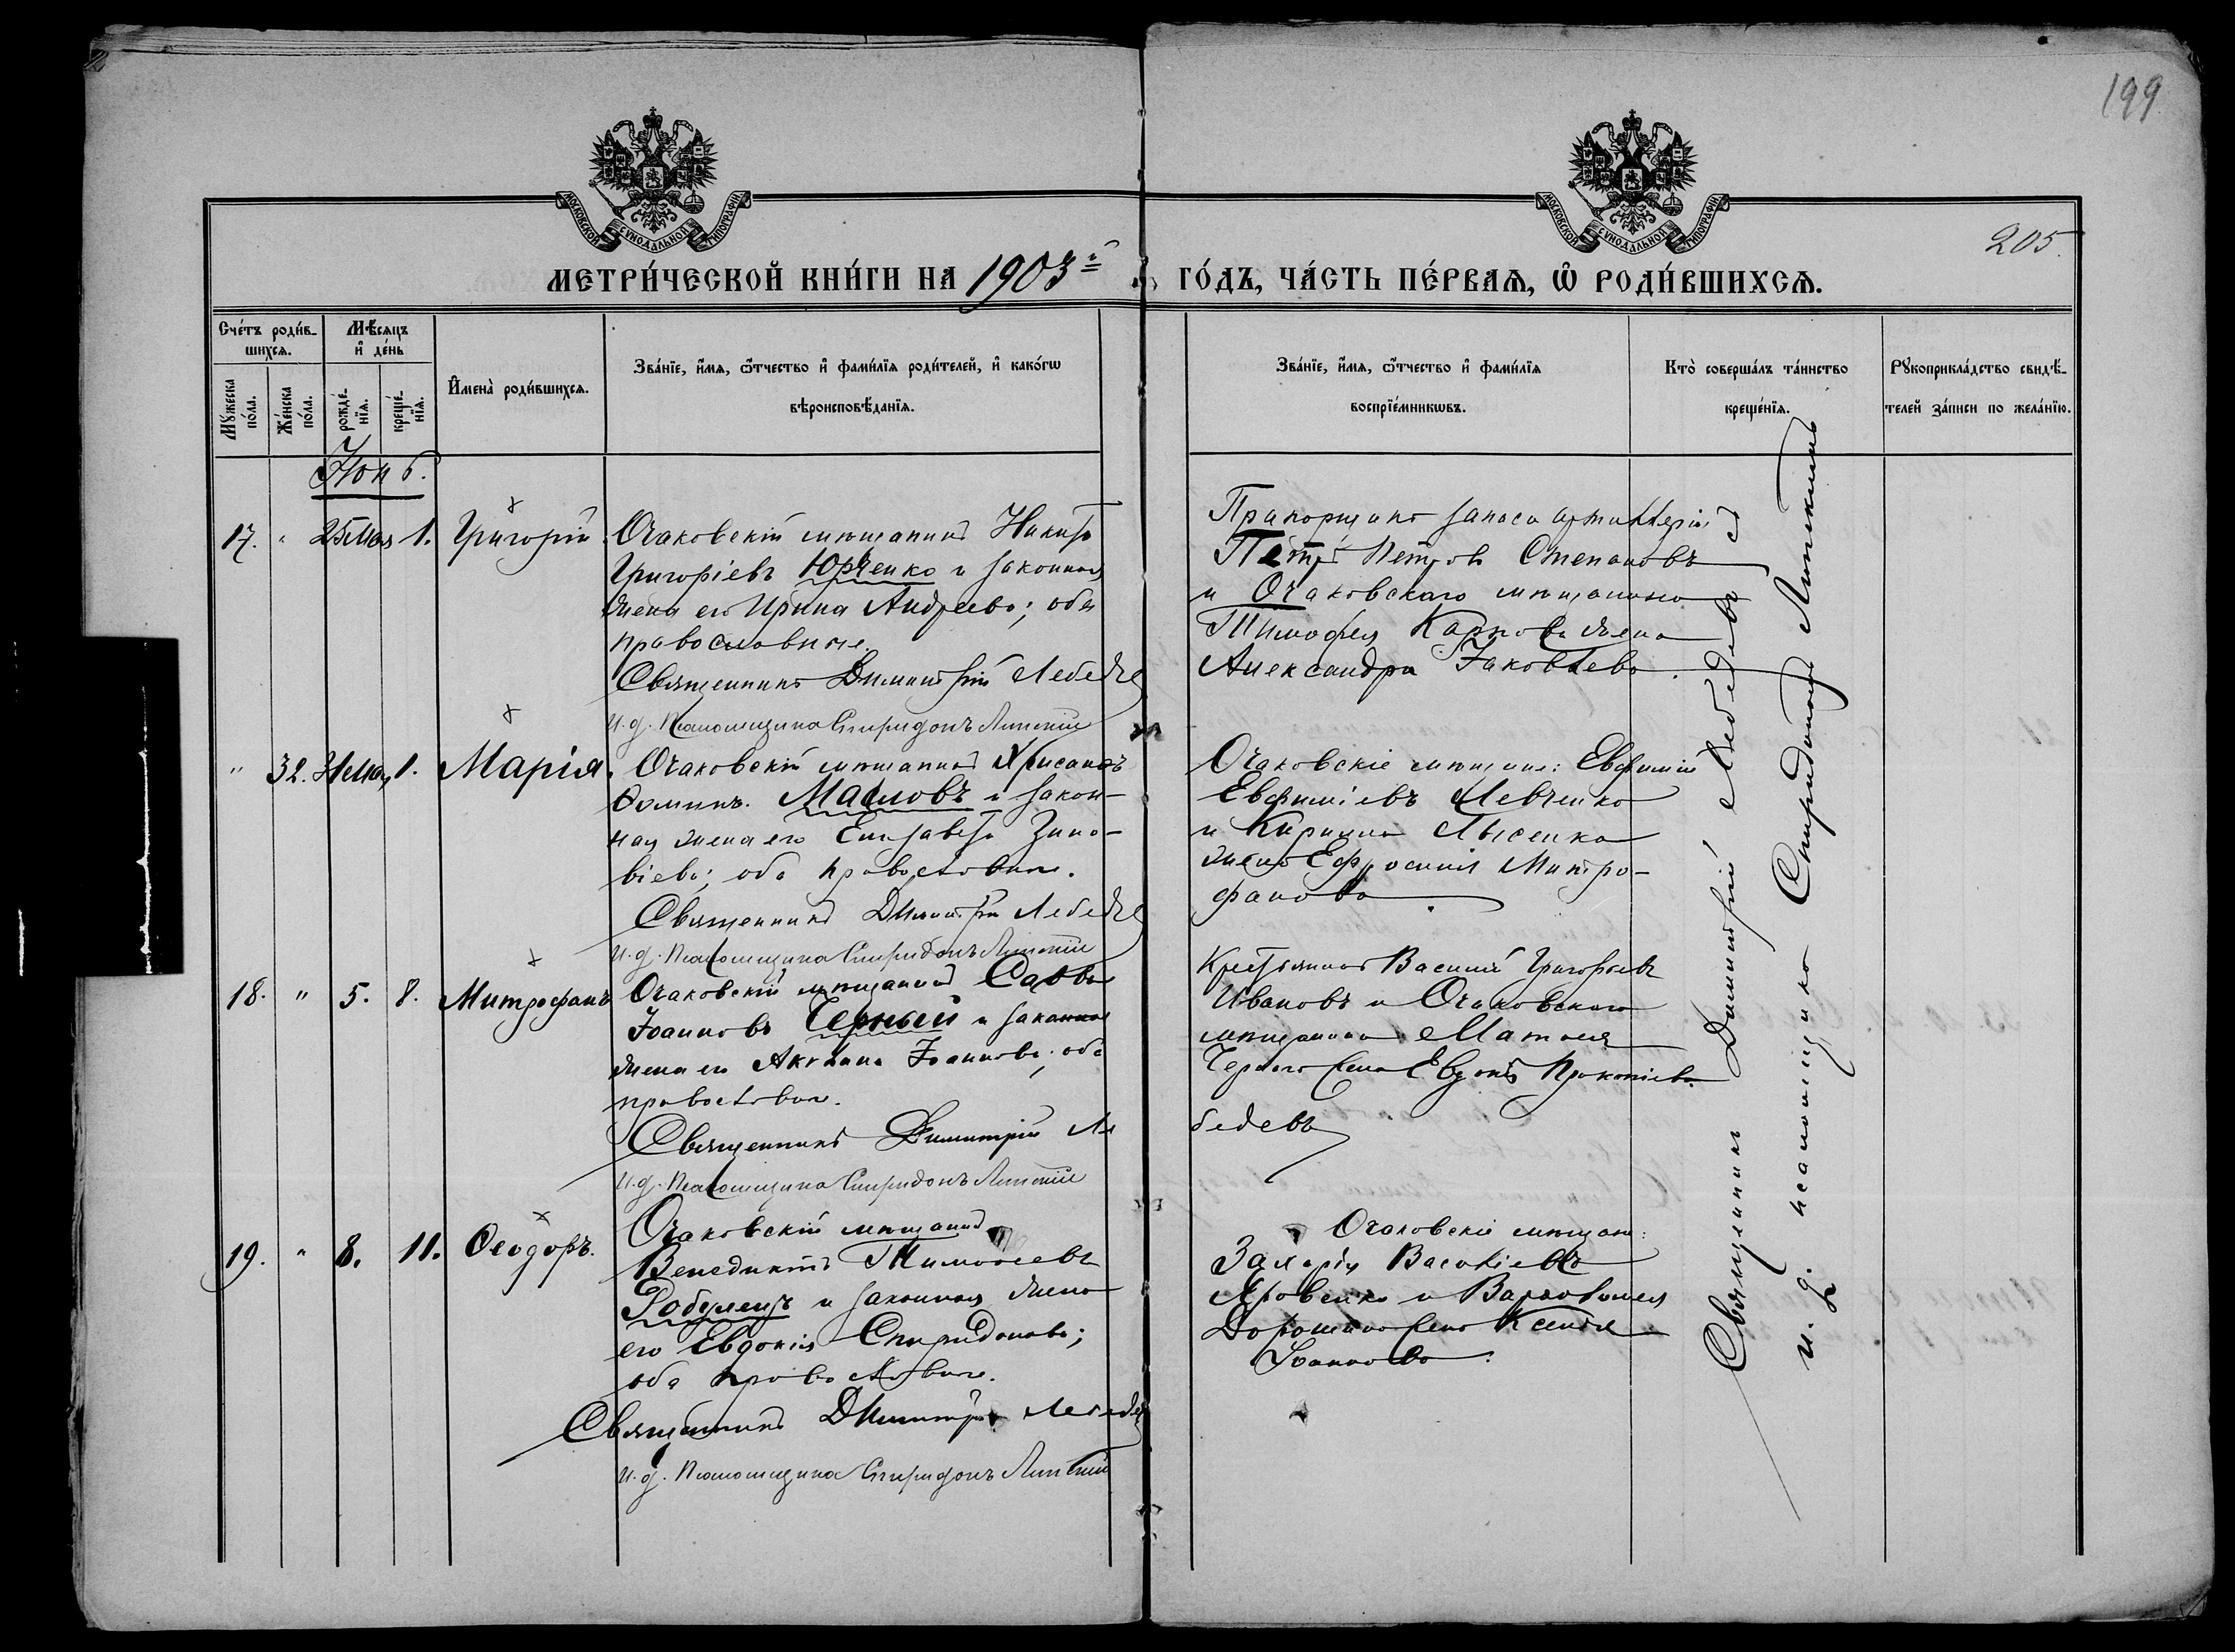 199
205
МОСКОВСКОЙ СѴНОДАЛЬНОЙ ТИПОГРАФІИ
МОСКОВСКОЙ СѴНОДАЛЬНОЙ ТИПОГРАФІИ
МЕТРИ́ЧЕСКОЙ КНИ́ГИ НА 1903й ГО́ДЪ, ЧА́СТЬ ПЕ́РВАѦ, Ѡ҆ РОДИ́ВШИХСѦ.
Сче́тъ роди́в-
шихсѧ.
Мѣ́сѧцъ
и҆ де́нь
Мꙋ́жеска
по́ла.
Же́нска
по́ла.
рожде́-
нїѧ.
креще́-
нїѧ.
И҆мена̀ роди́вшихсѧ.
Зва́нїе, и҆́мѧ, ѻ҆́тчество и҆ фами́лїѧ роди́телей, и҆ како́гѡ
вѣроисповѣ́данїѧ.
Зва́нїе, и҆́мѧ, ѻ҆́тчество и҆ фами́лїѧ
воспрїе́мникѡвъ.
Кто̀ соверша́лъ та́инство
креще́нїѧ.
Рꙋкоприкла́дство свидѣ́-
телей за́писи по жела́нїю.
Іюнь.
17. " 25 Мая 1. Григорій
Очаковскій мѣщанинъ Никита
Григоріевъ Юрченко и законная
жена его Ирина Андреева; оба
православные.
Священникъ Димитрій Лебедев
И.д. Псаломщика Спиридонъ Липскій
Прапорщикъ запаса артиллеріи
Петръ Петровъ Степановъ
и Очаковскаго мѣщанина
Тимофея Карпова жена
Александра Іаковлева.
" 32. 31 Мая 1. Марія.
Очаковскій мѣщанинъ Хрисанѳъ
Маловъ и закон-
ная жена его Елизавета Зино-
віева; оба православные.
Священникъ Димитрій Лебедев
И.д. Псаломщика Спиридонъ Липскій
Очаковскіе мѣщане: Евфимій
Евфиміевъ Левченко
и Кирилла Лысенка
жена Ефросинія Митро-
фанова.
18. " 5. 8. Митрофанъ
Очаковскій мѣщанинъ Савва
Іоанновъ Черный и законная
жена его Акилина Іоаннова; оба
православные.
Священникъ Димитрій Ле
бедевъ
И.д. Псаломщика Спиридонъ Липскій
Крестьянинъ Василій Григорьевъ
Ивановъ и Очаковскаго
мѣщанина
Чернаго жена Евдокія Прокопіева
19. " 8. 11. Ѳеодоръ.
Очаковскій мѣщанинъ
Венедиктъ Тимоѳеевъ
и законная жена
его Евдокія Спиридонова;
оба православные.
Священникъ Димитрій Лебедев
И.д. Псаломщика Спиридонъ Липскій
Очаковскіе мѣщане:
Захарія Василіевъ
Яровенко и Варѳоломея
жена Ксенія
Іоаннова.
Священникъ Димитрій Лебедевъ
и. д. псаломщика Спиридонъ Липскій